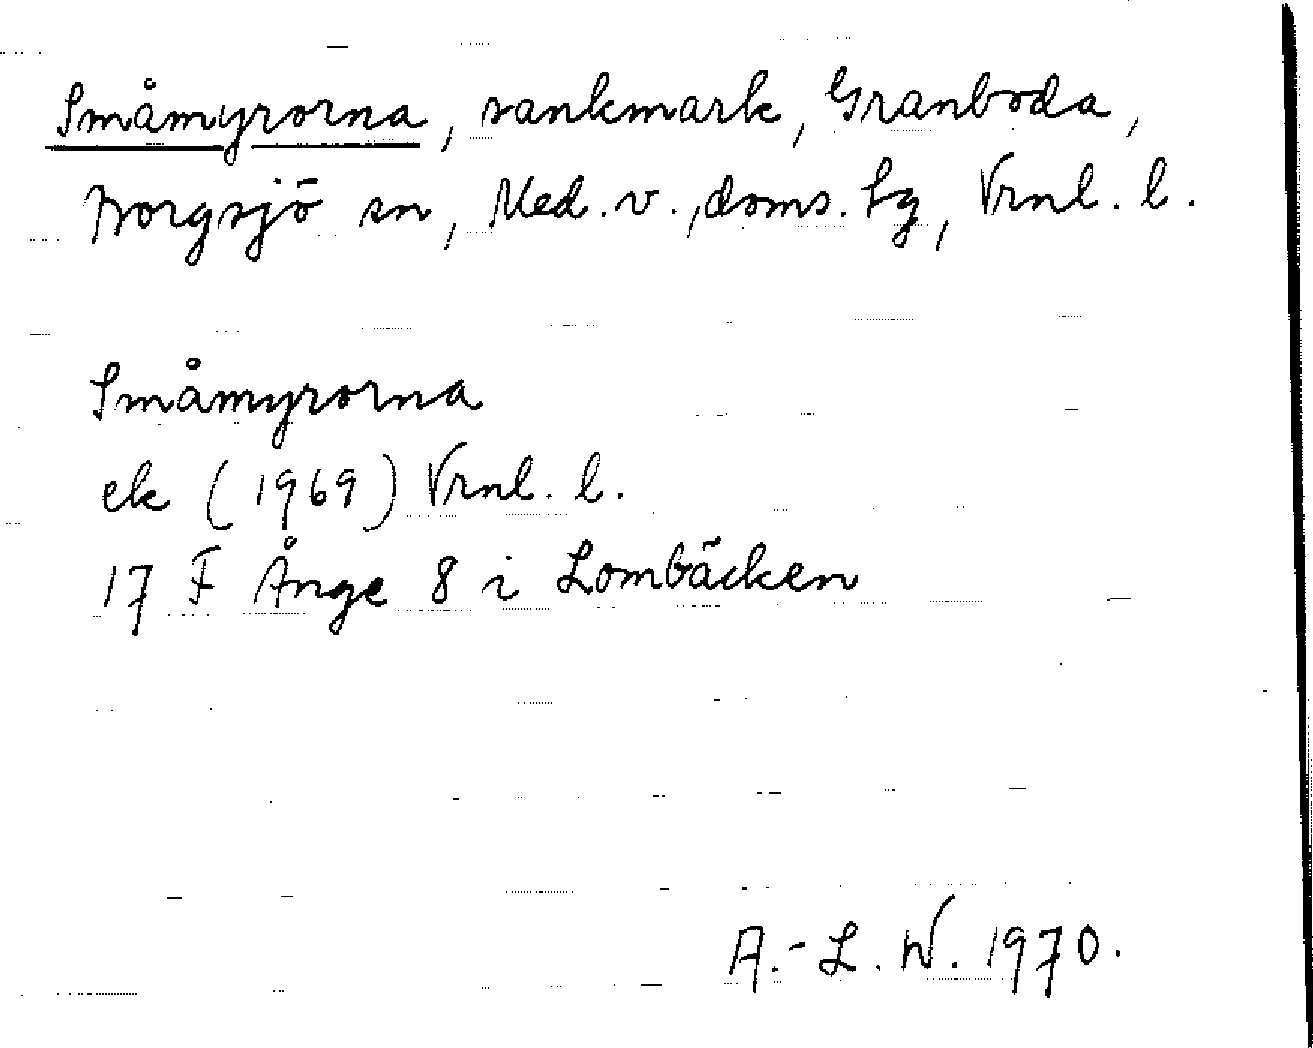 Småmyrorna, sankmark, Granboda,
Borgsjö sn, Med. v., doms. tg, Vrnl. l.
Småmyrorna
ek (1969) Vrnl. l.
17 F Ånge 8 i Lombäcken
A.-L. W. 1970.